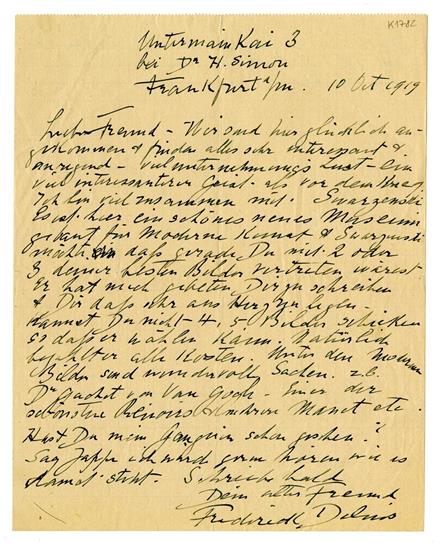 K1782
Untermainkai 3
bei Dr H. Simon
Frankfurt a/m. 10 Oct 1919
Lieber Freund – Wir sind hier glücklich an-
gekommen & finden alles sehr interessant &
anregend – viel unternehmungs Lust – ein
viel interessanterer Geist als vor dem Krieg.
Ich bin viel zusammen mit Swarzenski
Es ist hier ein schönes neues Museum
gebaut für Moderne Kunst & Swarzenski
möchte daß gerade Du mit 2 oder
3 deiner besten Bilder vertreten wärest
Er hat mich gebeten Dir zu schreiben
& Dir daß sehr ans Herz zu legen.
Kannst Du nicht 4, 5 Bilder schicken
so daß er wählen kann. Natürlich
bezahlt er alle Kosten. Unter den museum
Bilder sind wundervolle Sachen z.b.
Dr Gachet von Van Gogh – Einer der
schönsten Renoirs & mehrere Manet etc.
Hast Du mein Gauguin schon gesehen?
Sag Jappe ich würde gern hören wie es
damit steht. Schreibe bald
Dein alter Freund
Frederick Delius